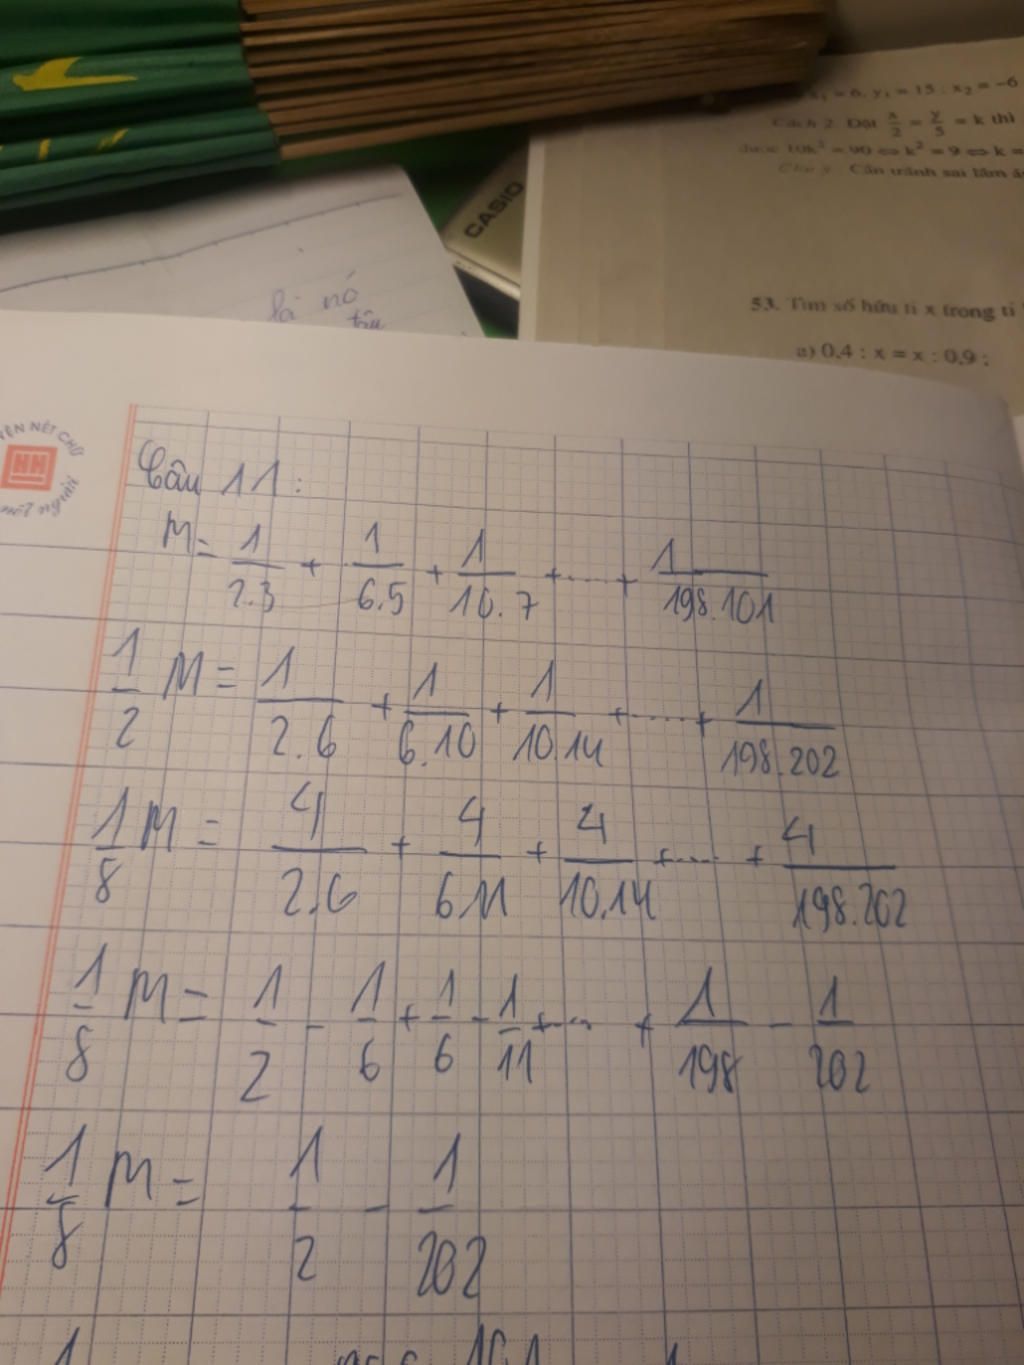 x₁ = 6, y₁ = 15 ; x₂ = -6
Cách 2. Đặt x/2 = y/5 = k thì
được 10k² = 90 ⇔ k² = 9 ⇔ k =
Chú ý. Cần tránh sai lầm
CASIO
là nó
53. Tìm số hữu tỉ x trong tỉ
a) 0,4 : x = x : 0,9 ;
NÉT CHỮ
HH
nết người
Câu 11:
M = 1/2.3 + 1/6.5 + 1/10.7 + .... + 1/198.101
1/2 M = 1/2.6 + 1/6.10 + 1/10.14 + ..... + 1/198.202
1/8 M = 4/2.6 + 4/6.11 + 4/10.14 + .... + 4/198.202
1/8 M = 1/2 - 1/6 + 1/6 - 1/11 + ... + 1/198 - 1/202
1/8 M = 1/2 - 1/202